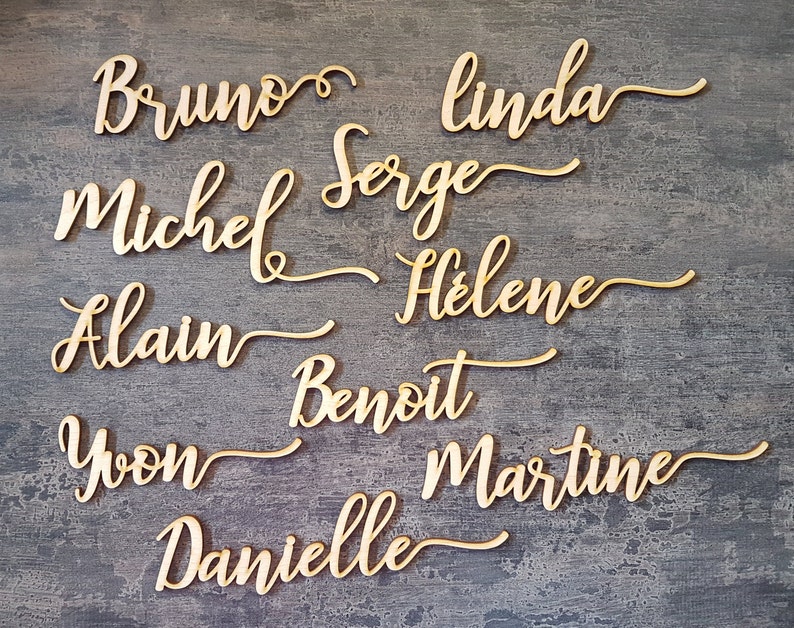 Bruno
linda
Serge
Michel
Hélene
Alain
Benoit
Yvon
Martine
Danielle